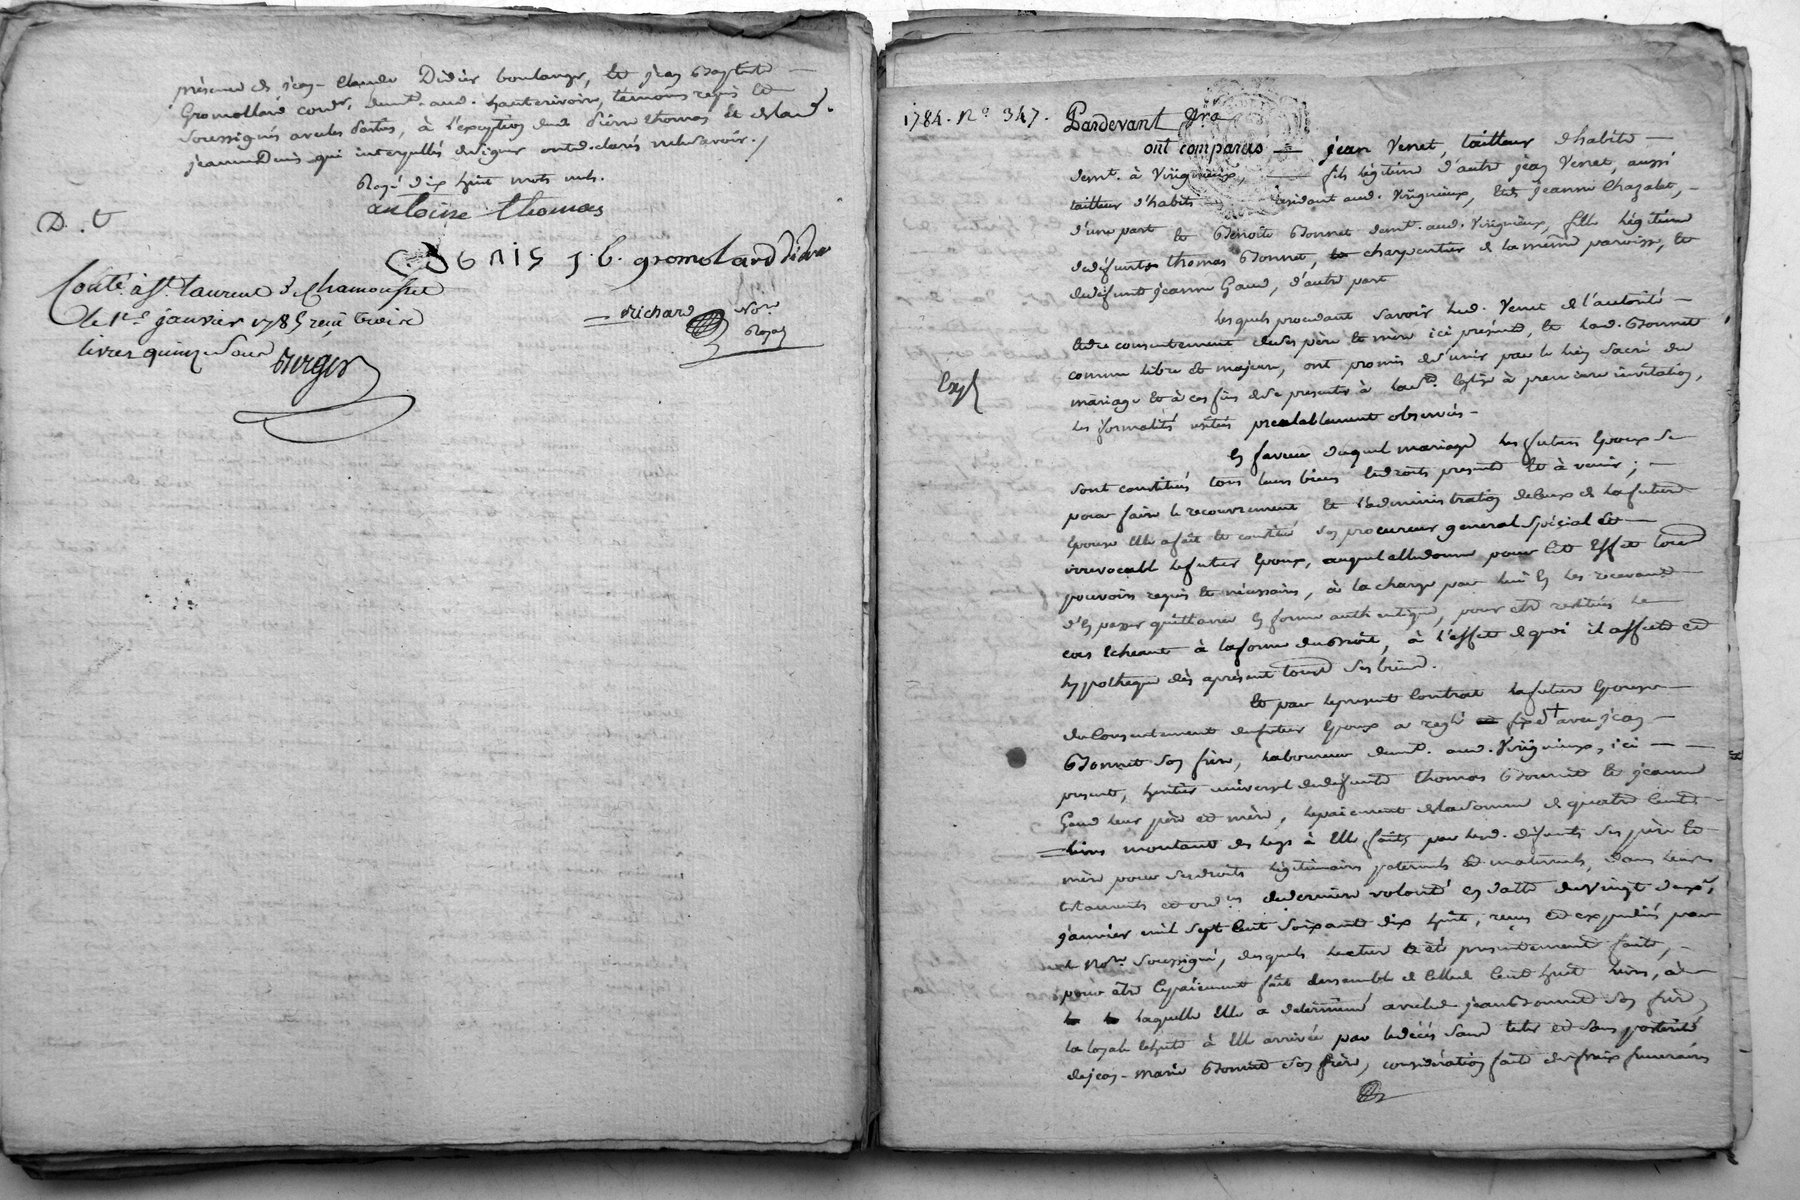 présence de jean-Claude Didier boulanger, et jean Baptiste
Gromollard cord.r demt. aud. hauterivoire, témoins requis et
soussignés avec les parties, à l'exception dud. Pierre thomas et de lad.
jeanne Denis qui interpellés de signer ont déclarés ne le savoir. /
Rayé dix huit mots nuls.
antoine thomas
D. V
DENIS J. b. gromolard didier
Conté. à St. Laurent de Chamousset
le 1er janvier 1785 reçu treize
livres quinze sous
Berger
Richard No.re
Royal
1784. No. 347. Pardevant &ra
ont comparus — jean Venet, tailleur d'habits —
demt. à Virignieux, — fils légitime d'autre jean Venet, aussi
tailleur d'habits résidant aud. Virignieux, et de jeanne Chazalet, –
d'une part et Benoite Bonnet demt. aud. Virignieux, fille légitime
de défunts thomas Bonnet, charpentier de la même paroisse, et
de défunte jeanne Gaud, d'autre part
Lesquels procedant savoir led. Venet de l'autorité —
et du consentement de ses père et mère ici présents, et lad. Bonnet
comme libre et majeure, ont promis de s'unir par le lien sacré du
mariage et à ces fins de se presenter à la Ste. Eglise à première invitation,
les formalités usitées prealablement observées –
Exp
En faveur duquel mariage les futurs Epoux se
sont constitués tous leurs biens et droits presents et à venir ; —
pour faire le recouvrement et l'administration de ceux de la future
Epouse elle a fait et constitué son procureur general spécial et —
irrevocable le futur Epoux, auquel elle donne pour cet effet tous
pouvoirs requis et nécessaires, à la charge par lui en les recevant
d'en passer quittance en forme authentique, pour etre restitués le
cas Echeant à la forme du droit, à l'effet de quoi il affecte et
hypothèque dès aprésent tous ses biens.
Et par le present Contrat la future Epouse —
du Consentement du futur Epoux a reglé fixé + avec jean —
Bonnet son frère, laboureur demt. aud. Virignieux, ici — —
present, heritier universel de défunts thomas Bonnet et jeanne
Gaud leur père et mère, le paiement de la somme de quatre cents
livres montant des legs à elle faits par lesd. défunts ses père et
mère pour ses droits légitimaires paternels et maternels, dans leurs
testaments et ord.ces de dernière volonté en datte du vingt deux
janvier mil sept cent soixante dix huit, reçus et expediés par
le No.re soussigné, desquels lecture a été presentement faite, –
pour être le paiement fait d'ensemble de celle de cent huit livres, à
laquelle elle a déterminé avec led. jean Bonnet son frère,
la loyale echute à elle arrivée par le décés sans tester et sans posterité
de jean-marie Bonnet son frère, considération faite des fraix funeraires